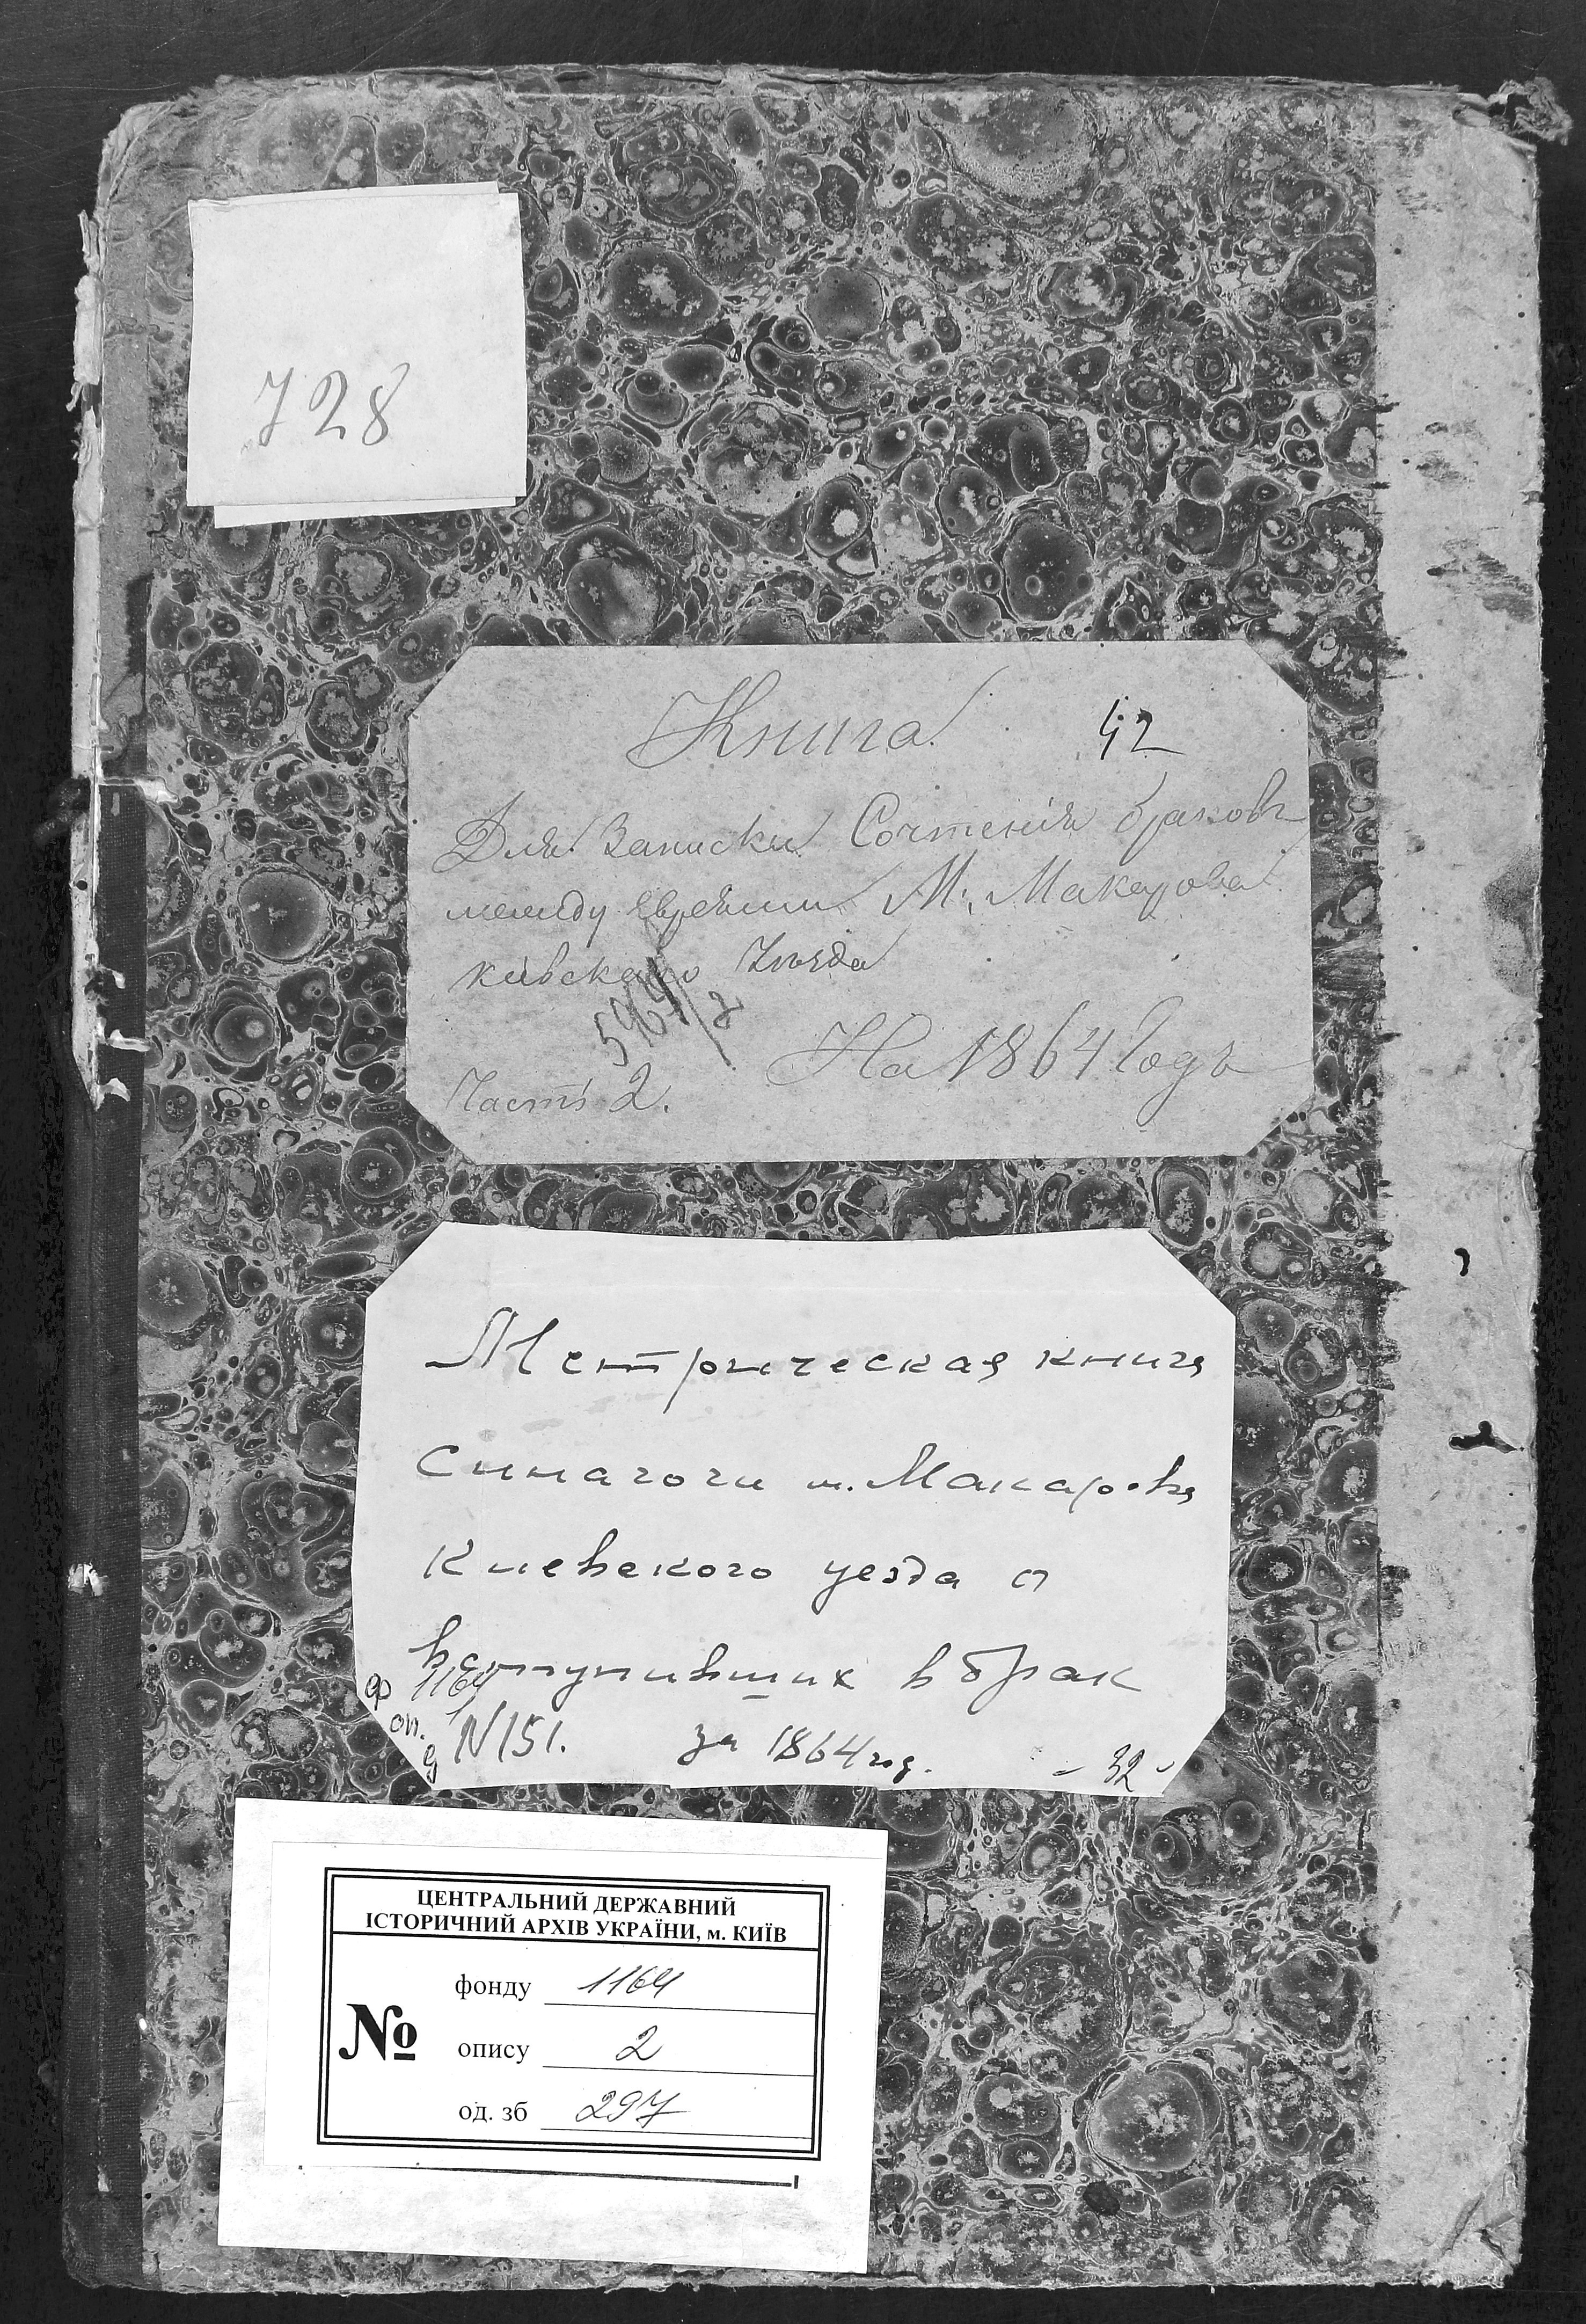 728
Книга 42
Для Записки Сочтенія браковъ
между евреями М. Макарова
кіевскаго Уѣзда
5964/2
На 1864 Годъ
Часть 2.
Метрическая книга
Синагоги м. Макарова
Киевского уезда о
вступивших в брак
ф 1164
оп. 1
д N151. за 1864 год. - 32 -
ЦЕНТРАЛЬНИЙ ДЕРЖАВНИЙ
ІСТОРИЧНИЙ АРХІВ УКРАЇНИ, м. КИЇВ
фонду 1164
№ опису 2
од. зб 297